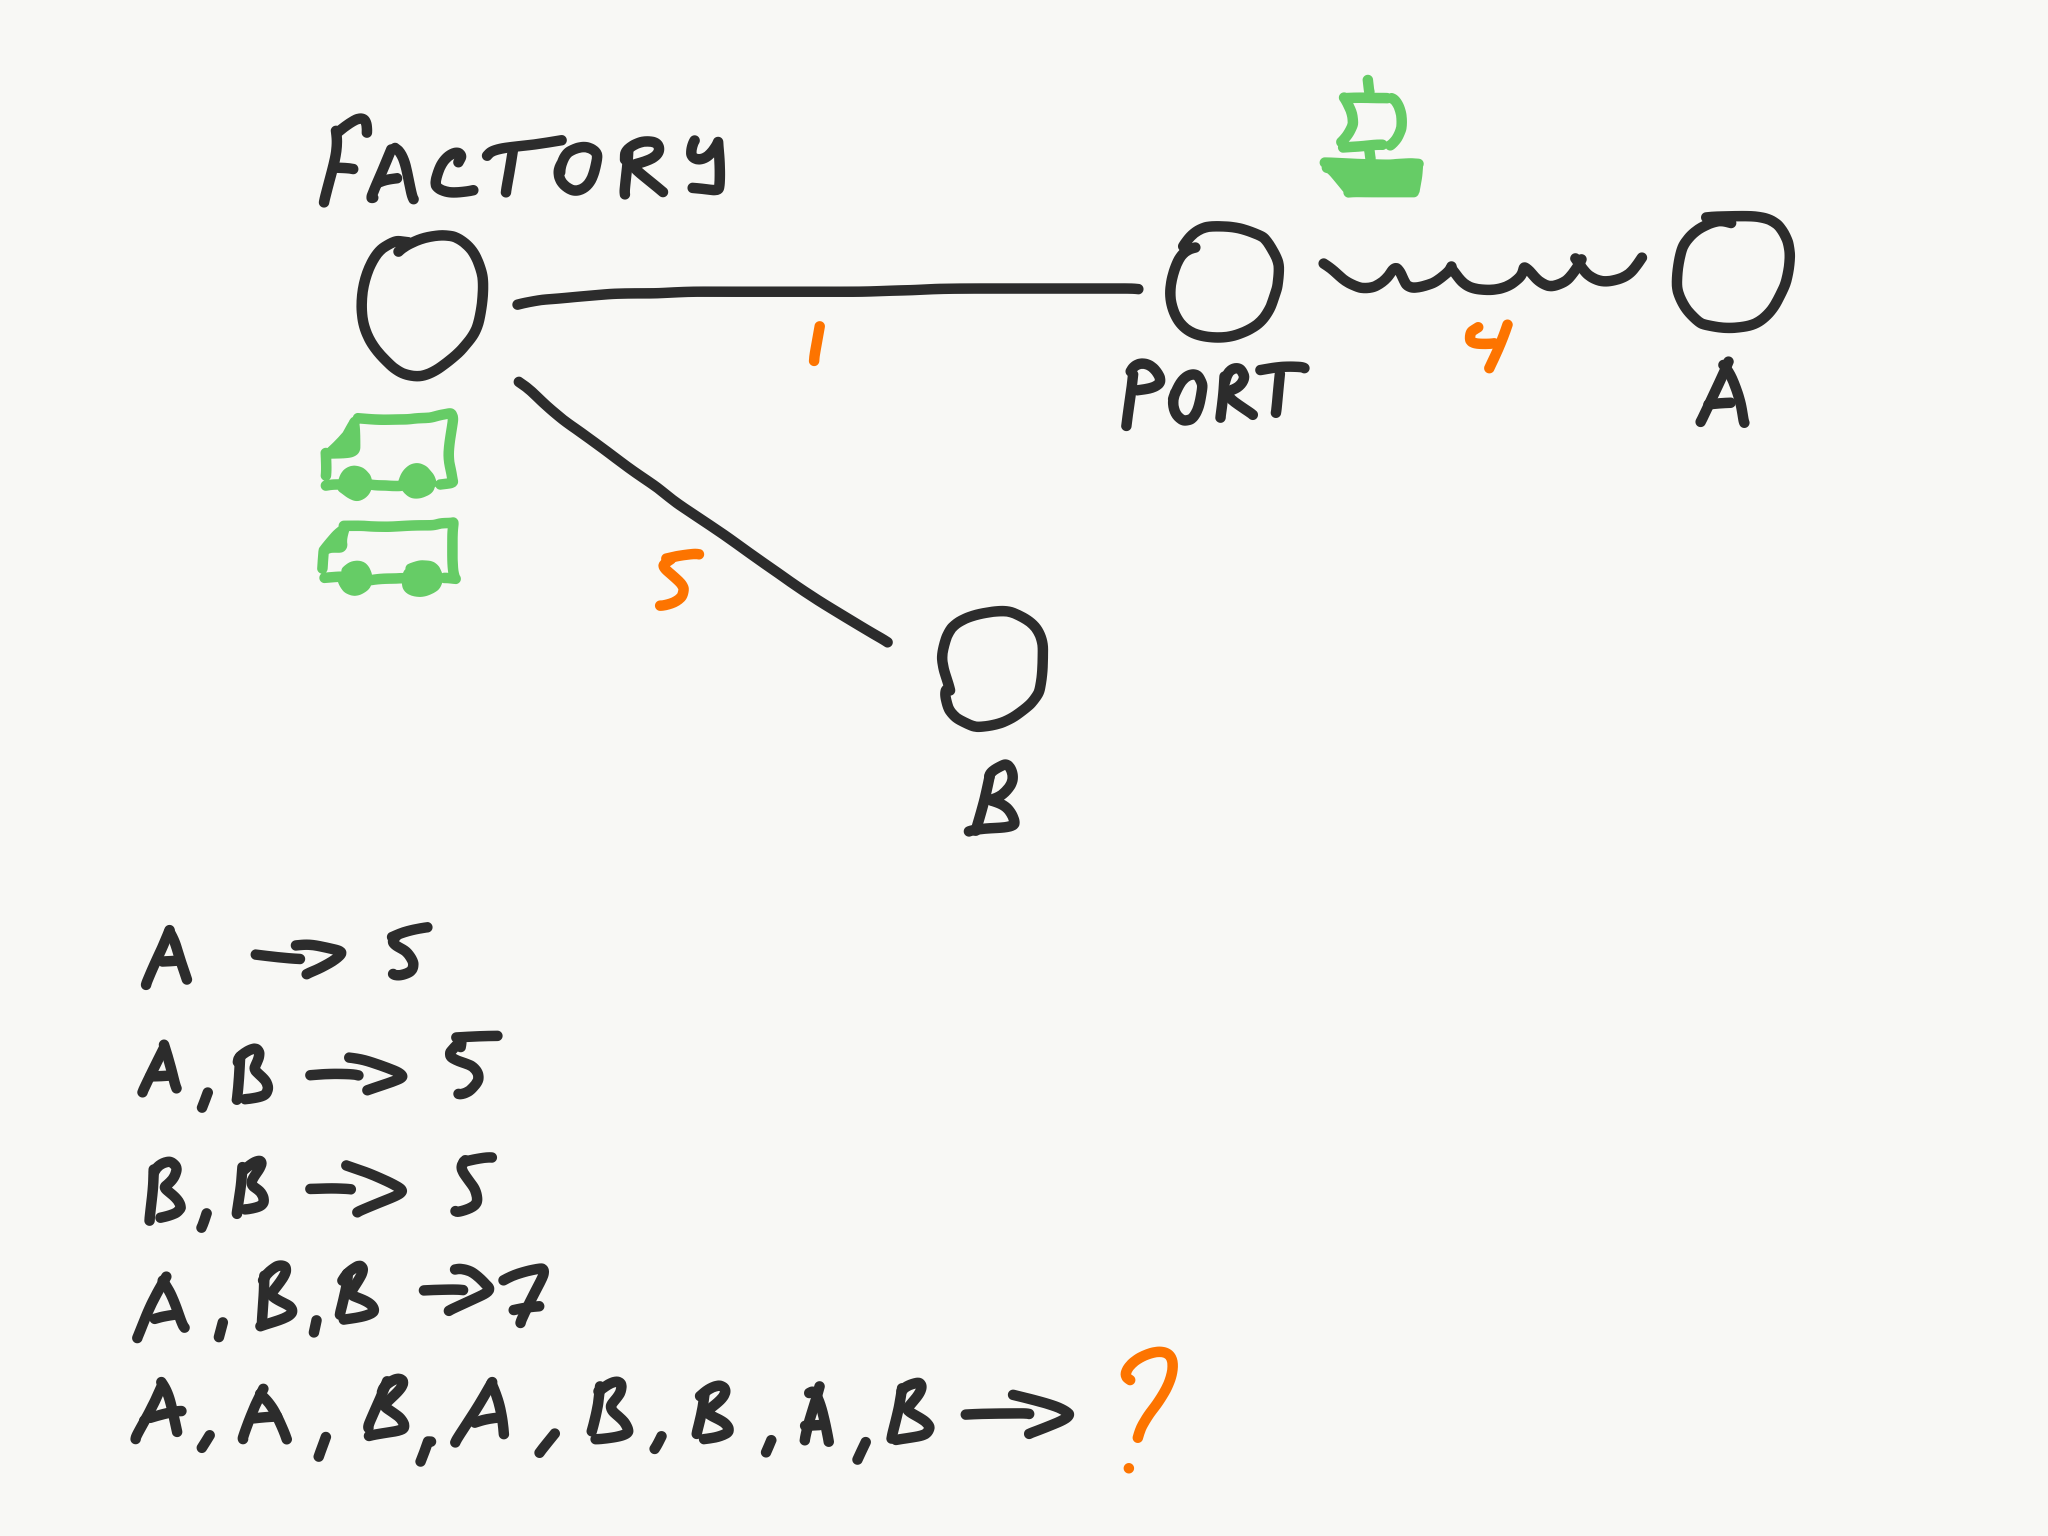 FACTORY
1
PORT
4
A
5
B
A -> 5
A, B -> 5
B, B -> 5
A, B, B -> 7
A, A, B, A, B, B, A, B -> ?